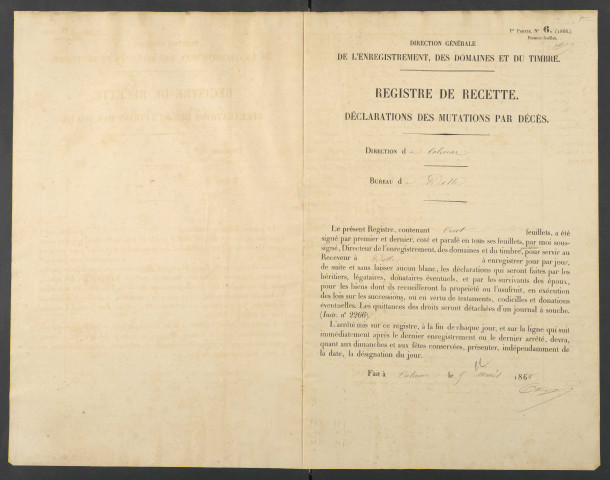 Iʳᵉ Partie, Nº 6. (1866.)
Premier feuillet.
DIRECTION GÉNÉRALE
DE L'ENREGISTREMENT, DES DOMAINES ET DU TIMBRE.
REGISTRE DE RECETTE.
DÉCLARATIONS DES MUTATIONS PAR DÉCÈS.
Direction d e Colmar
Bureau d e
Le présent Registre, contenant Cent feuillets, a été
signé par premier et dernier, coté et parafé en tous ses feuillets, par moi sous-
signé, Directeur de l'enregistrement, des domaines et du timbre, pour servir au
Receveur à à enregistrer jour par jour,
de suite et sans laisser aucun blanc, les déclarations qui seront faites par les
héritiers, légataires, donataires éventuels, et par les survivants des époux,
pour les biens dont ils recueilleront la propriété ou l'usufruit, en exécution
des lois sur les successions, ou en vertu de testaments, codicilles et donations
éventuelles. Les quittances des droits seront détachées d'un journal à souche.
(Instr. nº 2266).
L'arrêté mis sur ce registre, à la fin de chaque jour, et sur la ligne qui suit
immédiatement après le dernier enregistrement ou le dernier arrêté, devra,
quant aux dimanches et aux fêtes conservées, présenter, indépendamment de
la date, la désignation du jour.
Fait à Colmar le 5 186